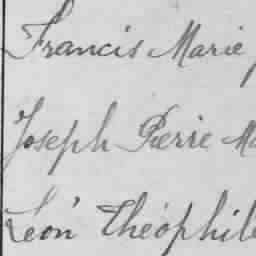 Francis Marie
Joseph Pierre
Léon Théophile